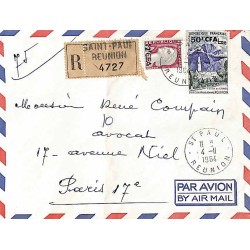 SAINT-PAUL
REUNION
R
4727
CFA
Monsieur René Compain
avocat
17 - avenue Niel
Paris 17e
ST PAUL
4-11
1964
REUNION
PAR AVION
BY AIR MAIL